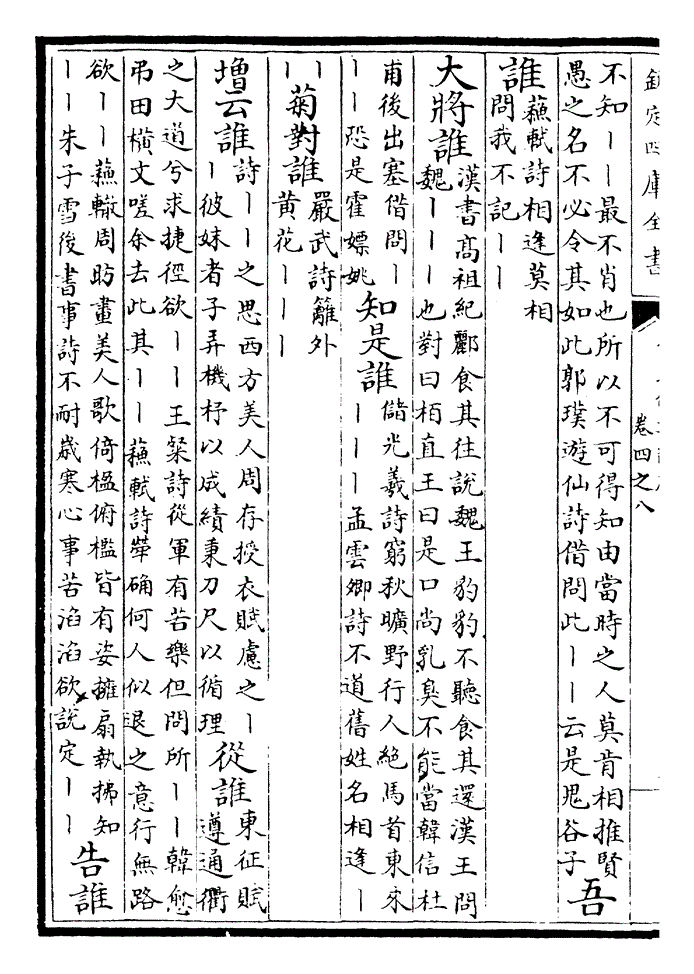 欽定四庫全書
卷四之八
不知丨丨最不肖也所以不可得知由當時之人莫肯相推賢
愚之名不必令其如此郭璞遊仙詩借問此丨丨云是鬼谷子
吾
誰
蘇軾詩相逢莫相
問我不記丨丨
大將誰
漢書髙祖紀酈食其往說魏王豹豹不聽食其還漢王問
魏丨丨丨也對曰栢直王曰是口尚乳臭不能當韓信杜
甫後出塞借問丨
丨丨恐是霍嫖姚
知是誰
儲光羲詩窮秋曠野行人絕馬首東來
丨丨丨孟雲卿詩不道舊姓名相逢丨
丨
丨
菊對誰
嚴武詩籬外
黄花丨丨丨
增云誰
詩丨丨之思西方美人周存授衣賦慮之丨
丨彼妹者子弄機杼以成績秉刀尺以循理
從誰
東征賦
遵通衢
之大道兮求捷徑欲丨丨王粲詩從軍有苦樂但問所丨丨韓愈
弔田横文嗟余去此其丨丨蘇軾詩犖确何人似退之意行無路
欲丨丨蘇轍周昉畫美人歌倚楹俯檻皆有姿擁扇執拂知
丨丨朱子雪後書事詩不耐歲寒心事苦滔滔欲說定丨丨
告誰